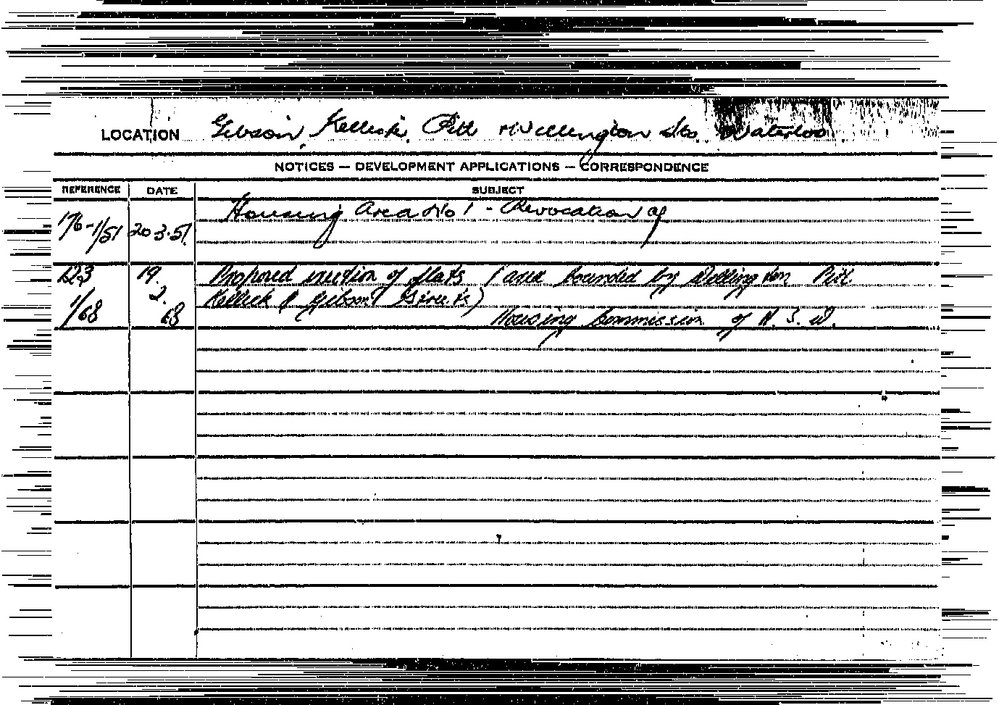 LOCATION Gibson, Kellick, Pitt & Wellington Sts. Waterloo
NOTICES — DEVELOPMENT APPLICATIONS — CORRESPONDENCE
REFERENCE DATE SUBJECT
176-1/51 20.3.51. Housing Area No 1 - Revocation of
223 19. Proposed erection of flats (area bounded by Wellington Pitt
1/68 2. Kellick & Gibson Streets)
68 Housing Commission of N. S. W.